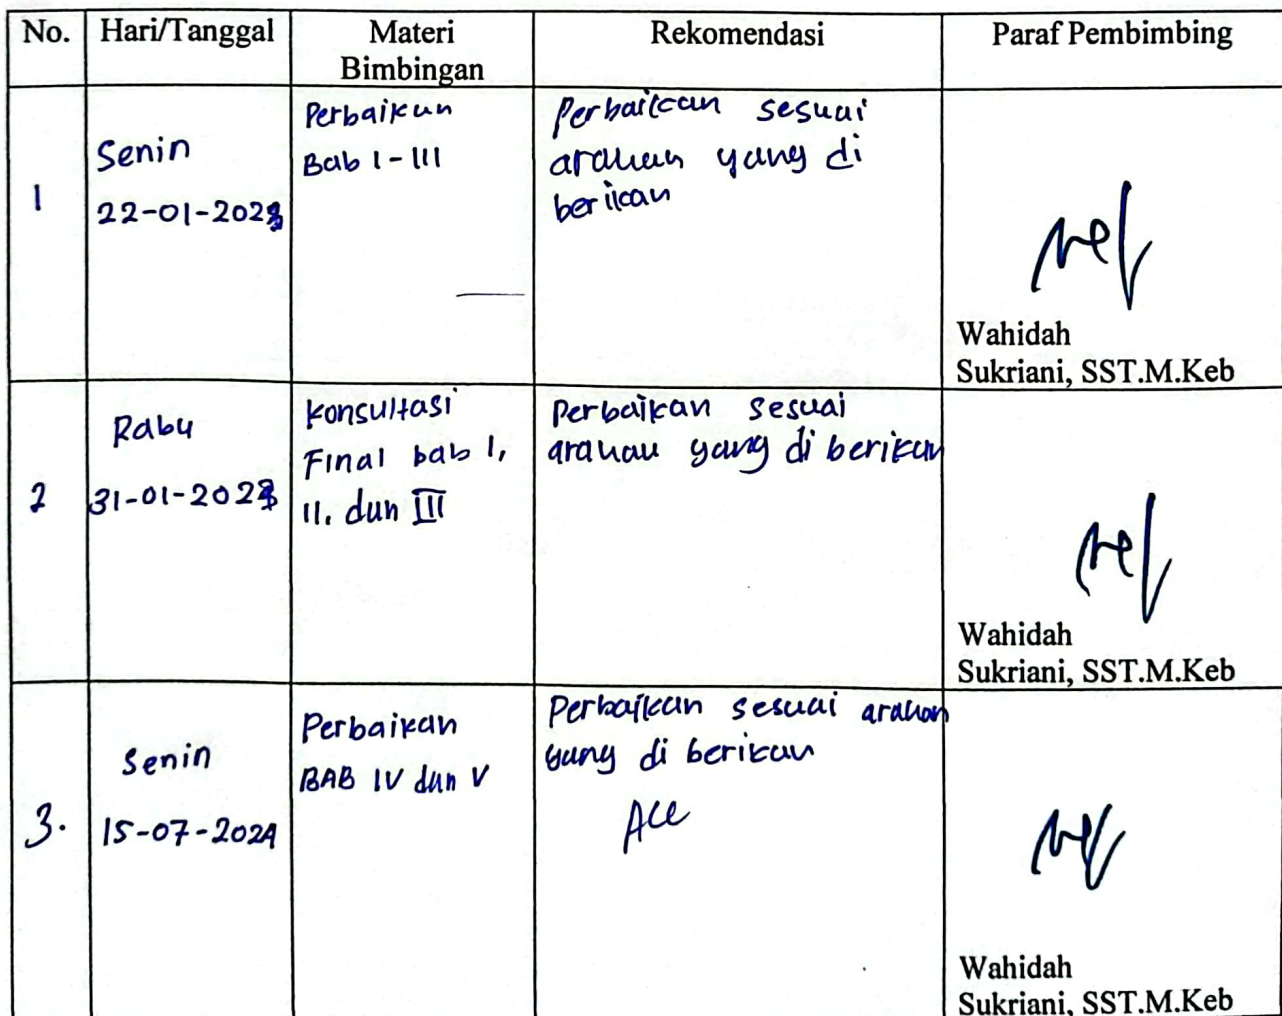 No. Hari/Tanggal Materi Bimbingan Rekomendasi Paraf Pembimbing
1
Senin
22-01-202
Perbaikan
Bab I-III
Perbaikan sesuai
arahan yang di
berikan
Wahidah
Sukriani, SST.M.Keb
2
Rabu
31-01-202
Konsultasi
Final bab I,
II. dan III
Perbaikan sesuai
arahan yang di berikan
Wahidah
Sukriani, SST.M.Keb
3.
Senin
15-07-2024
Perbaikan
BAB IV dan V
Perbaikan sesuai arahan
yang di berikan
Acc
Wahidah
Sukriani, SST.M.Keb